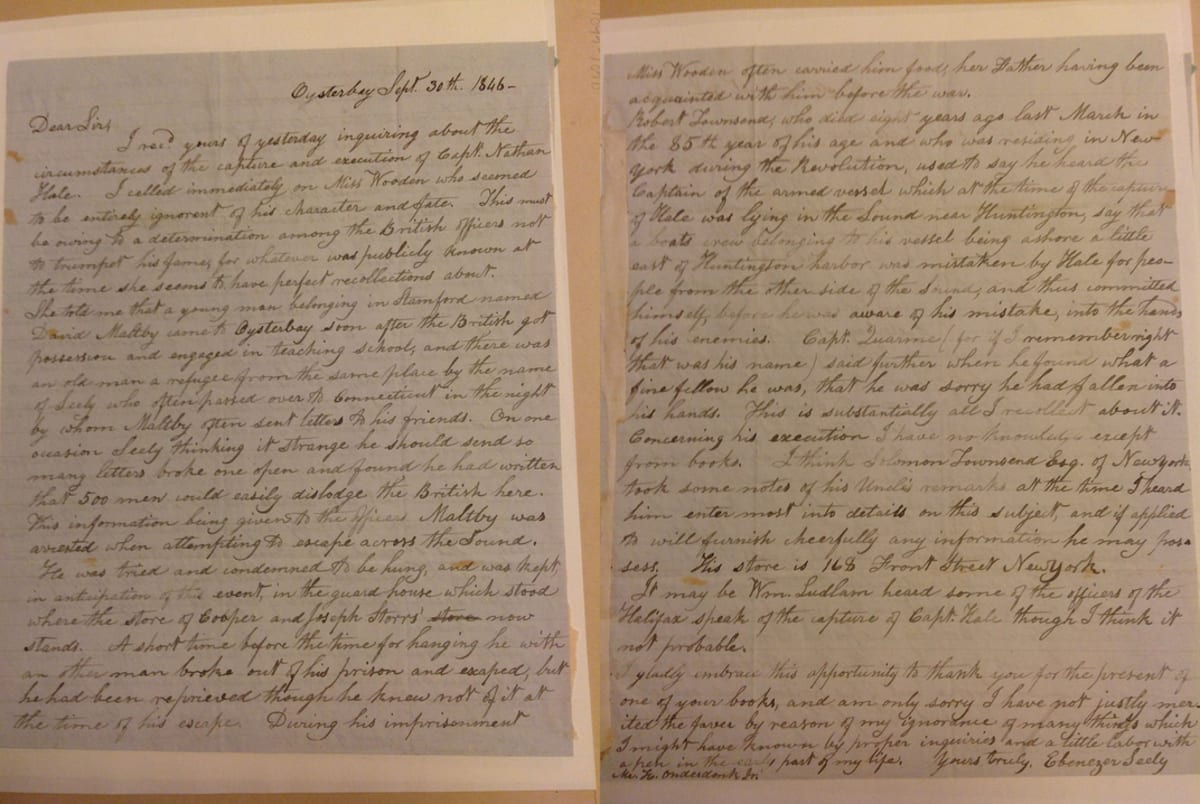 Oysterbay Sept. 30th. 1846-
Dear Sir,
I recd yours of yesterday inquiring about the
circumstances of the capture and execution of Capt. Nathan
Hale. I called immediately on Miss Wooden who seemed
to be entirely ignorent of his character and fate. This must
be owing to a determination among the British officers not
to trumpet his fame, for whatever was publicly known at
the time she seems to have perfect recollections about.
She told me that a young man belonging in Stamford named
David Maltby came to Oysterbay soon after the British got
possession and engaged in teaching school, and there was
an old man a refugee from the same place by the name
of Seely who often passed over to Connecticut in the night
by whom Maltby often sent letters to his friends. On one
occasion Seely thinking it strange he should send so
many letters broke one open and found he had written
that 500 men could easily dislodge the British here.
This information being given to the officers Maltby was
arrested when attempting to escape across the Sound.
He was tried and condemned to be hung, and was kept,
in anticipation of this event, in the guard house which stood
where the store of Cooper and Joseph Storrs' store now
stands. A short time before the time for hanging he with
an other man broke out of his prison and escaped, but
he had been reprieved though he knew not of it at
the time of his escape. During his imprisonment
Miss Wooden often carried him food, her Father having been
acquainted with him before the war.
Robert Townsend, who died eight years ago last March in
the 85th year of his age and who was residing in New-
york during the Revolution, used to say he heard the
Captain of the armed vessel which at the time of the capture
of Hale was lying in the Sound near Huntington, say that
a boats crew belonging to his vessel being ashore a little
east of Huntington harbor was mistaken by Hale for peo-
ple from the other side of the Sound, and thus committed
himself, before he was aware of his mistake, into the hands
of his enemies. Capt. Quarme (for if I remember right
that was his name) said further when he found what a
fine fellow he was, that he was sorry he had fallen into
his hands. This is substantially all I recollect about it.
Concerning his execution I have no knowledge except
from books. I think Solomon Townsend Esq. of Newyork,
took some notes of his Uncle's remarks at the time I heard
him enter most into details on this subject, and if applied
to will furnish cheerfully any information he may pos-
sess. His store is 168 Front Street Newyork.
It may be Wm. Ludlam heard some of the officers of the
Halifax speak of the capture of Capt. Hale though I think it
not probable.
I gladly embrace this opportunity to thank you for the present of
one of your books, and am only sorry I have not justly mer-
ited the favor by reason of my ignorance of many things which
I might have known by proper inquiries and a little labor with
a pen in the early part of my life. Yours truly, Ebenezer Seely
Mr. H. Onderdonk Jr.